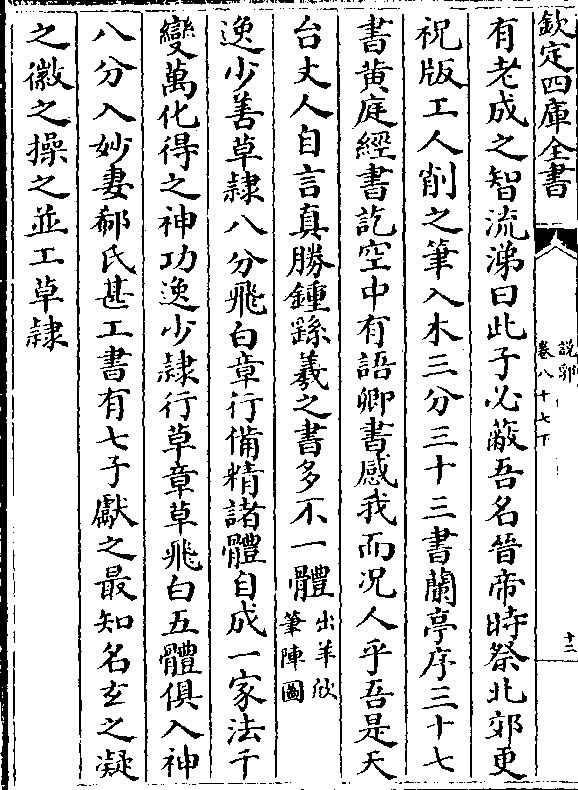 欽定四庫全書
說郛
卷八十七下
十二
有老成之智流涕曰此子必蔽吾名晉帝時祭北郊更
祝版工人削之筆入木三分三十三書蘭亭序三十七
書黃庭經書訖空中有語卿書感我而况人乎吾是天
台丈人自言真勝鍾繇羲之書多不一體出羊欣筆陣圖
逸少善草隸八分飛白章行備精諸體自成一家法千
變萬化得之神功逸少隸行草章草飛白五體俱入神
八分入妙妻郗氏甚工書有七子獻之最知名玄之凝
之徽之操之並工草隸